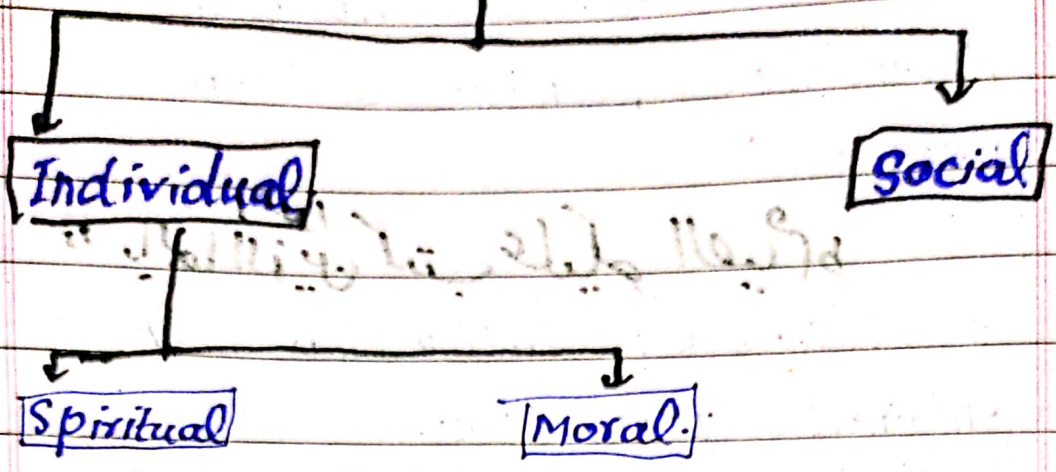 Individual.
Social
Spiritual
Moral.